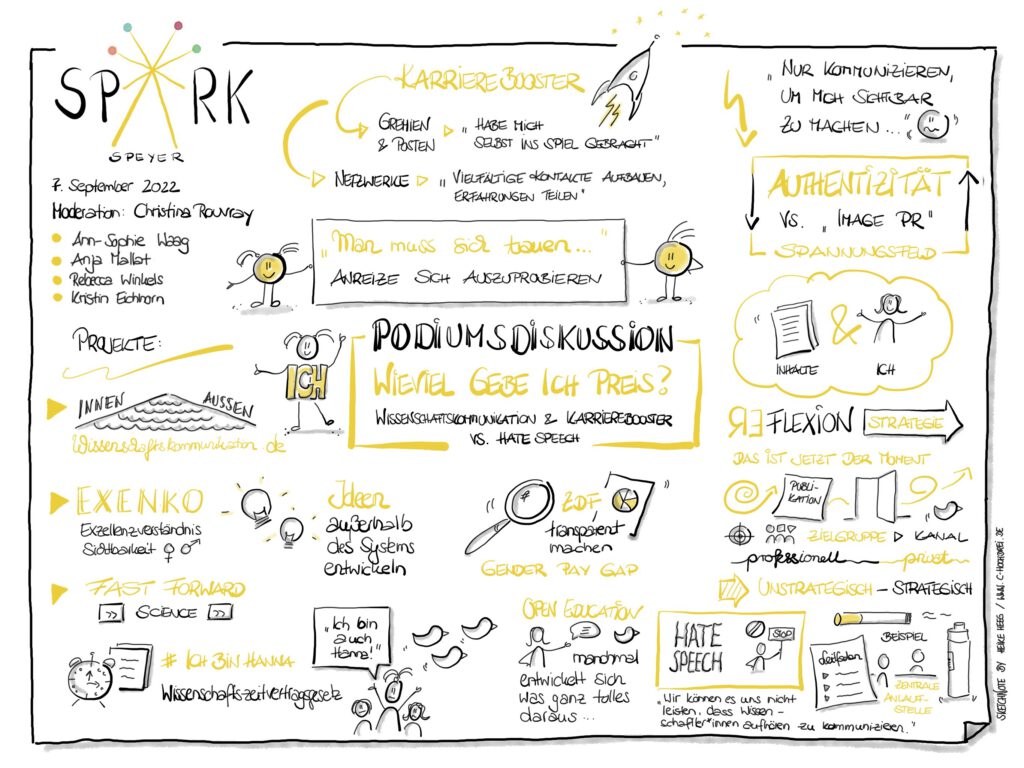 SPARK
SPEYER
7. September 2022
Moderation: Christina Rouvray
Ann-Sophie Waag
Anja Mallat
Rebecca Winkels
Kristin Eichhorn
KARRIEREBOOSTER
GREMIEN
& POSTEN
"HABE MICH
SELBST INS SPIEL GEBRACHT"
NETZWERKE
"VIELFÄLTIGE KONTAKTE AUFBAUEN,
ERFAHRUNGEN TEILEN"
"Man muss sich trauen..."
ANREIZE SICH AUSZUPROBIEREN
"NUR KOMMUNIZIEREN,
UM MICH SICHTBAR
ZU MACHEN..."
AUTHENTIZITÄT
VS. "IMAGE PR"
SPANNUNGSFELD
INHALTE
&
ICH
PROJEKTE:
INNEN
AUSSEN
Wissenschaftskommunikation.de
ICH
PODIUMSDISKUSSION
WIEVIEL GEBE ICH PREIS?
WISSENSCHAFTSKOMMUNIKATION & KARRIEREBOOSTER
VS. HATE SPEECH
REFLEXION
STRATEGIE
DAS IST JETZT DER MOMENT
PUBLI-
KATION
ZIELGRUPPE
KANAL
professionell
privat
UNSTRATEGISCH – STRATEGISCH
EXENKO
Exzellenzverständnis
Sichtbarkeit ♀ ♂
Ideen
außerhalb
des Systems
entwickeln
#
ZDF,
transparent
machen
GENDER PAY GAP
FAST FORWARD
>> SCIENCE >>
# ICH BIN HANNA
Wissenschaftszeitvertragsgesetz
"Ich bin
auch
Hanna!"
OPEN EDUCATION
manchmal
entwickelt sich
was ganz tolles
daraus...
HATE
SPEECH
STOP
"Wir können es uns nicht
leisten, dass Wissen-
schaftler*innen aufhören zu kommunizieren."
Leitfaden
BEISPIEL
ZENTRALE
ANLAUF-
STELLE
SKETCHNOTE BY HEIKE HEEG / WWW.C-HOCHDREI.DE